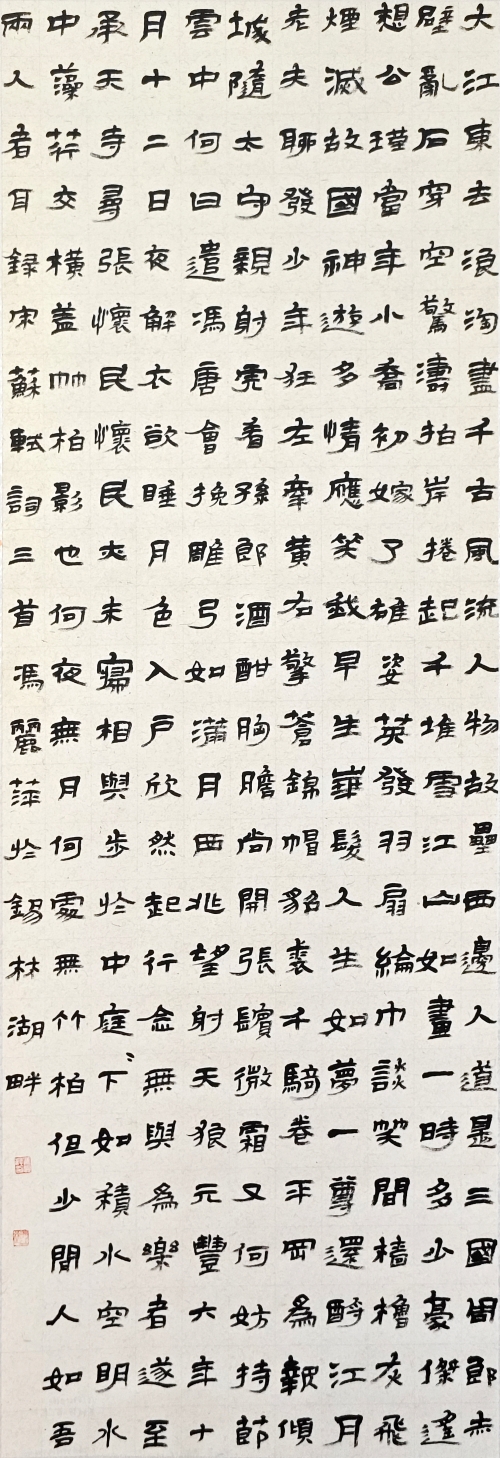 大江東去浪淘盡千古風流人物故壘西邊人道是三國周郎赤
壁亂石穿空驚濤拍岸捲起千堆雪江山如畫一時多少豪傑遙
想公瑾當年小喬初嫁了雄姿英發羽扇綸巾談笑間檣櫓灰飛
煙滅故國神遊多情應笑我早生華髮人生如夢一尊還酹江月
老夫聊發少年狂左牽黃右擎蒼錦帽貂裘千騎卷平岡為報傾
城隨太守親射虎看孫郎酒酣胸膽尚開張鬢微霜又何妨持節
雲中何日遣馮唐會挽雕弓如滿月西北望射天狼元豐六年十
月十二日夜解衣欲睡月色入戶欣然起行念無與為樂者遂至
承天寺尋張懷民懷民亦未寢相與步於中庭〻下如積水空明水
中藻荇交橫蓋竹柏影也何夜無月何處無竹柏但少閒人如吾
兩人者耳錄宋蘇軾詞三首馮麗萍於錫林湖畔